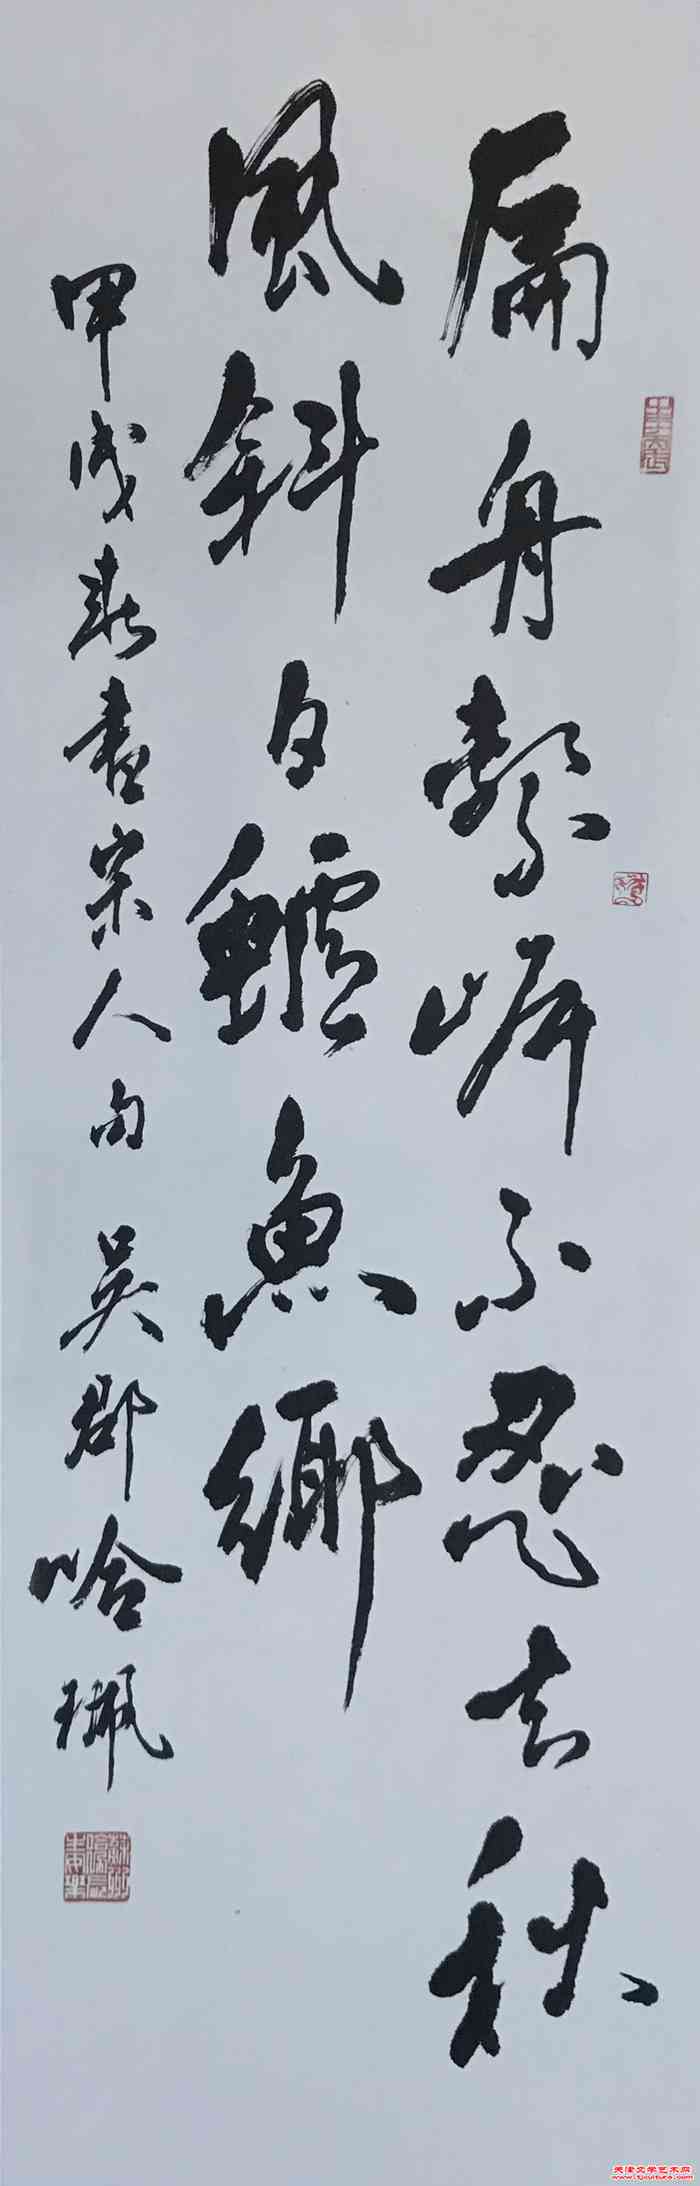 扁舟繫岸不忍去秋
風斜日鱸魚鄉
甲戌春書宋人句 吴郡哈珮
天津文学艺术网
www.tjculture.com